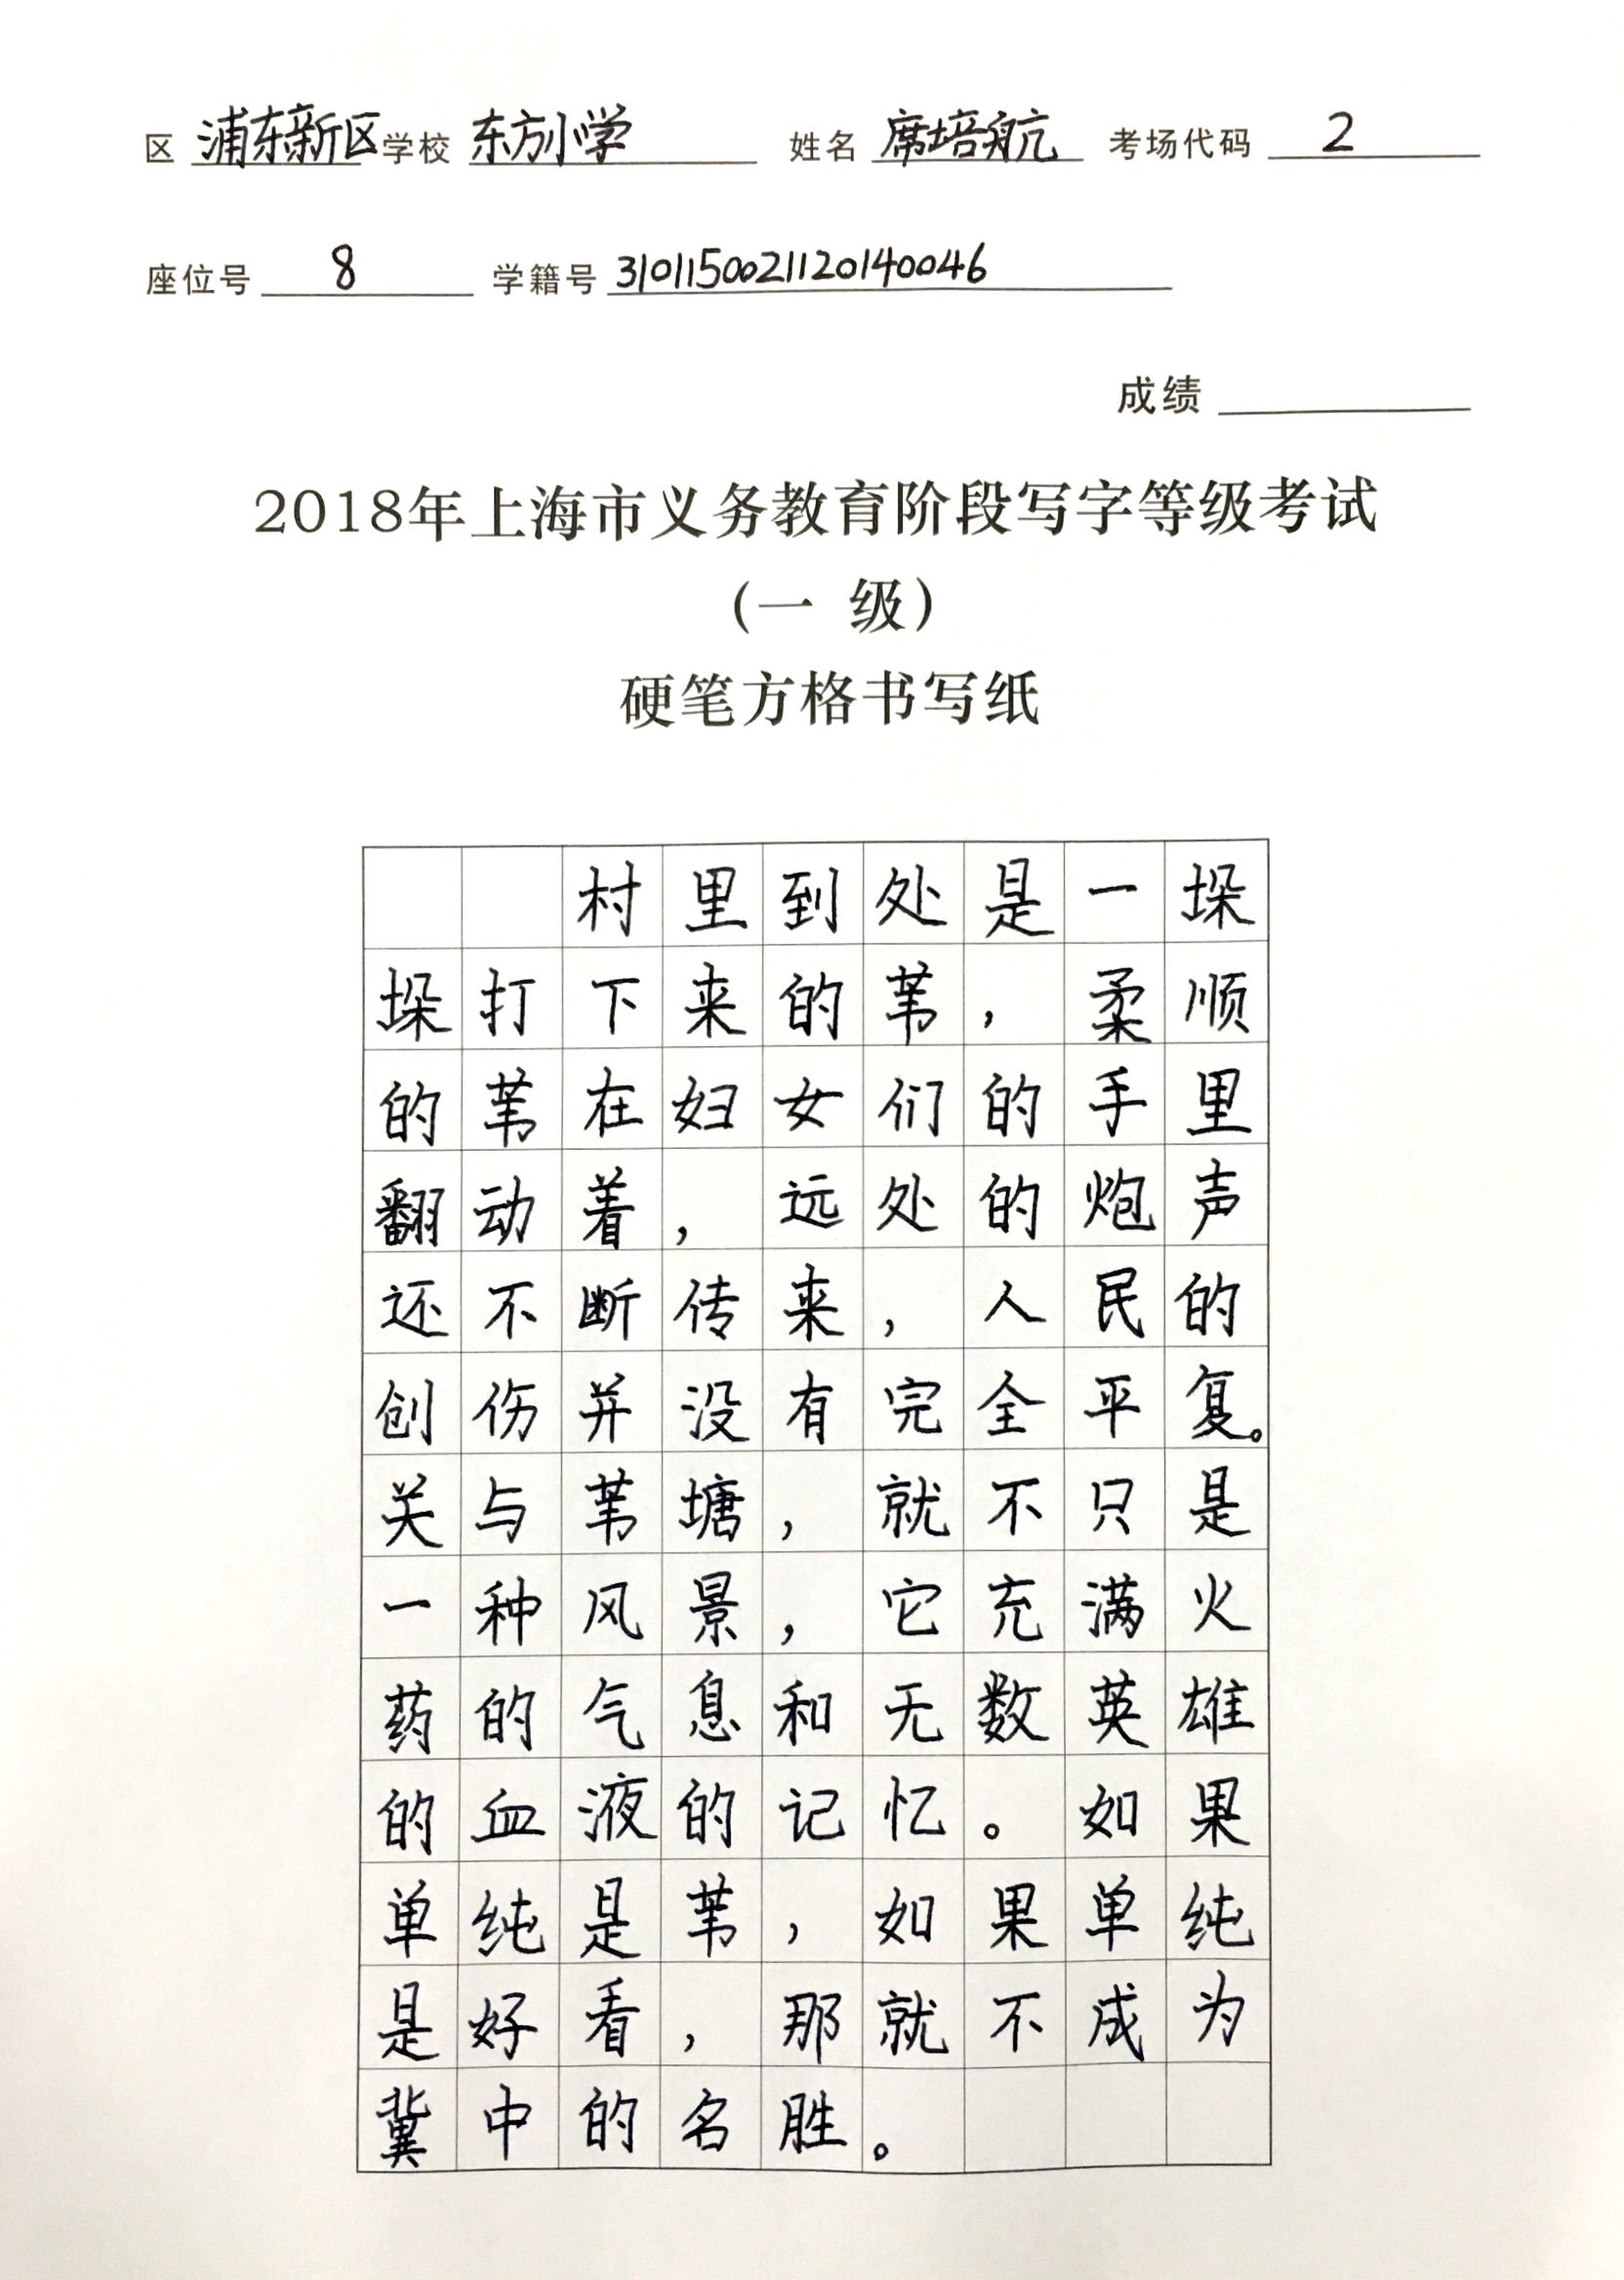 区 浦东新区 学校 东方小学 姓名 席培航 考场代码 2
座位号 8 学籍号 3101150021120140046
成绩
2018年上海市义务教育阶段写字等级考试
(一 级)
硬笔方格书写纸
村里到处是一垛
垛打下来的苇，柔顺
的苇在妇女们的手里
翻动着，远处的炮声
还不断传来，人民的
创伤并没有完全平复。
关与苇塘，就不只是
一种风景，它充满火
药的气息和无数英雄
的血液的记忆。如果
单纯是苇，如果单纯
是好看，那就不成为
冀中的名胜。